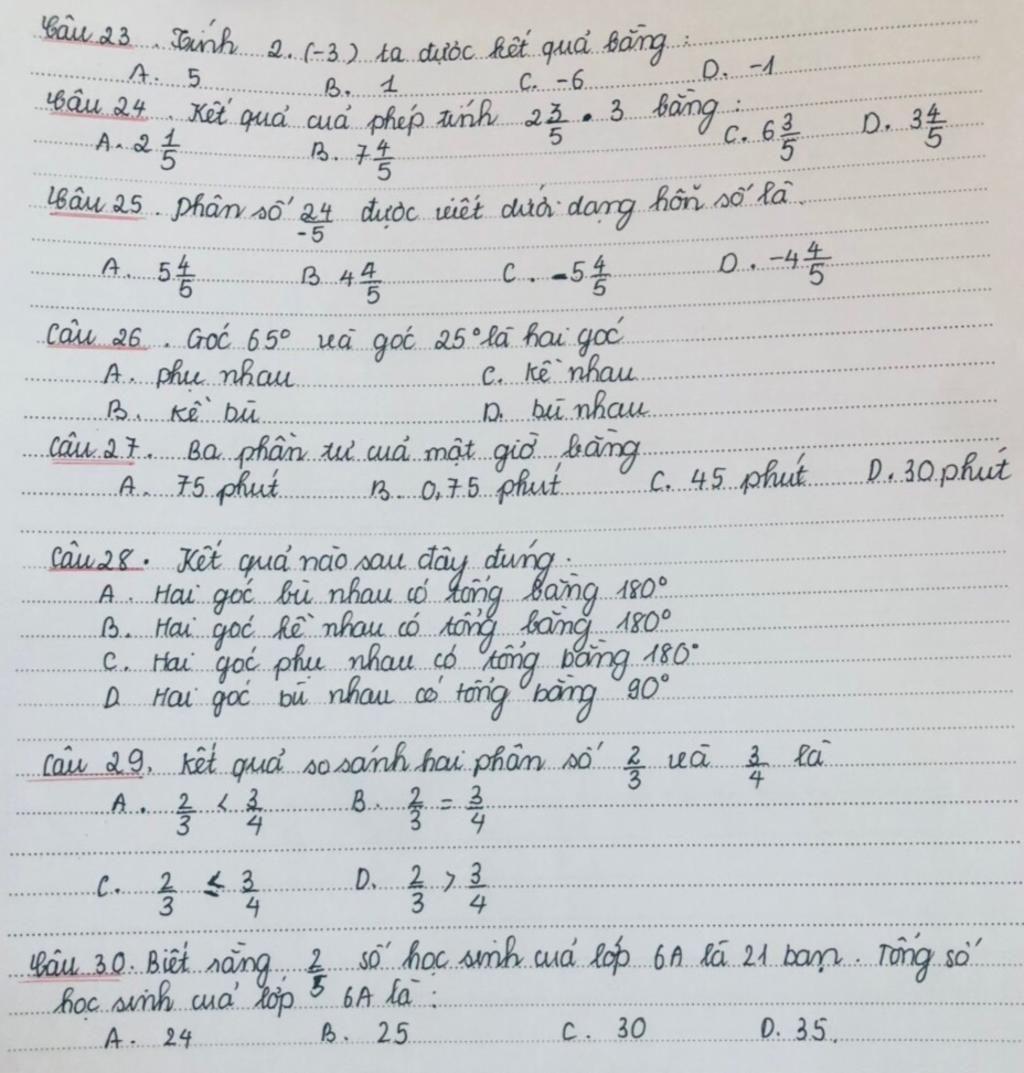 Câu 23. Tính 2.(-3) ta được kết quả bằng:
A. 5 B. 1 C. -6 D. -1
Câu 24. Kết quả của phép tính 2 3/5 . 3 bằng:
A. 2 1/5 B. 7 4/5 C. 6 3/5 D. 3 4/5
Câu 25. Phân số 24/-5 được viết dưới dạng hỗn số là
A. 5 4/5 B. 4 4/5 C. -5 4/5 D. -4 4/5
Câu 26. Góc 65° và góc 25° là hai góc
A. phụ nhau C. kề nhau
B. kề bù D. bù nhau
Câu 27. Ba phần tư của một giờ bằng
A. 75 phút B. 0,75 phút C. 45 phút D. 30 phút
Câu 28. Kết quả nào sau đây đúng.
A. Hai góc bù nhau có tổng bằng 180°
B. Hai góc kề nhau có tổng bằng 180°
C. Hai góc phụ nhau có tổng bằng 180°
D Hai góc bù nhau có tổng bằng 90°
Câu 29. Kết quả so sánh hai phân số 2/3 và 3/4 là
A. 2/3 < 3/4 B. 2/3 = 3/4
C. 2/3 ≤ 3/4 D. 2/3 > 3/4
Câu 30. Biết rằng số học sinh của lớp 6A là 21 bạn. Tổng số
học sinh của lớp 6A là:
A. 24 B. 25 C. 30 D. 35.